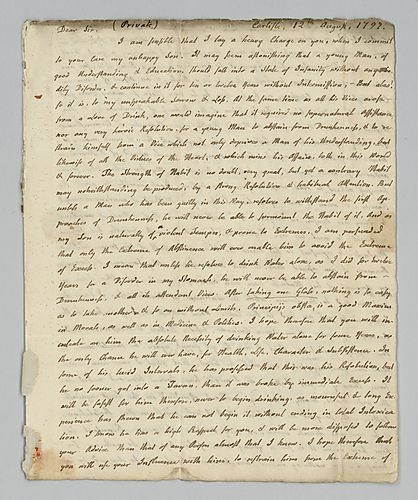 Dear Sir. (Private) Carlisle, 12th August, 1797.
I am sensible that I lay a heavy Charge on you, when I commit
to your Care my unhappy Son. It may seem astonishing that a young Man, of
good Understanding & Education, should fall into a State of Insanity without any
dity Disorder, & continue in it for ten or twelve Years without Intermission; But alas!
so it is, to my unspeakable Sorrow & Loss. At the same time, as all his Vices arose
from a Love of Drink, one would imagine that it required no supernatural Assistance,
nor any very heroic Resolution, for a young Man to abstain from Drunkenness, & to re
strain himself from a Vice which not only deprives a Man of his Understanding, but
likewise of all the Virtues of the Heart, & which ruins his Affairs, both in this World
& forever. The Strength of Habit is, no doubt, very great, but yet a contrary Habit
may notwithstanding be produced, by a strong Resolution & habitual Attention. But
unless a Man who has been guilty in this Way, resolves to withstand the first Ap
proaches of Drunkenness, he will never be able to surmount the Habit of it. And as
my Son is naturally of violent Temper, & prone to Extremes, I am persuaded
that only the Extreme of Abstinence will ever enable him to avoid the Extreme
of Excess. I mean that unless he resolves to drink Water alone, as I did for twelve
Years for a Disorder in my Stomach, he will never be able to abstain from
Drunkenness & all its attendant Vices. After taking one Glass, nothing is so easy
as to take another & so on without Limits. Principiis obsta, is a good Maxim
in Morals, as well as in Medicine & Politics. I hope therefore that you will in-
culcate on him the absolute Necessity of drinking Water alone for some Years, as
the only Chance he will ever have, for Health, Life, Character & Subsistence. In
some of his lucid Intervals, he has professed that this was his Resolution, but
he no sooner got into a Tavern, than it was broke by immediate Excess. It
will be safest for him therefore, never to begin drinking, as mournful & long Ex-
perience has shewn that he can not begin it without ending in total Intoxica
tion. I know he has a high Respect for you, & will be more disposed to follow
your Advice than that of any Person almost that I know. I hope therefore that
you will use your Influence with him, to restrain him from the Extreme of